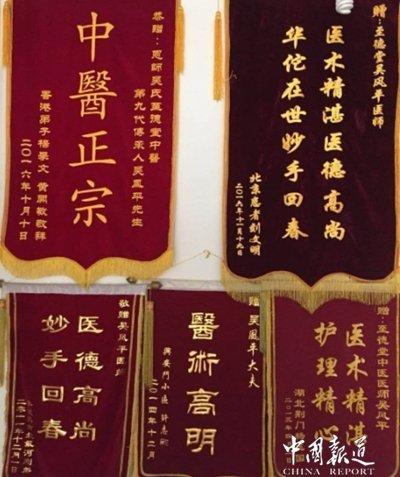 恭赠：恩師吴氏至德堂中醫
第九代傳承人吴鳳平先生
中醫正宗
香港弟子楊景文 黄開敏敬拜
二〇一六年十月十日
赠：至德堂吴风平医师
医术精湛医德高尚
华佗在世妙手回春
北京患者刘文明
二〇一五年十一月十九日
敬赠吴风平医师
医德高尚
妙手回春
二〇一一年十二月一日
敬赠 吴凤平大夫
醫術高明
興安門小區
二〇一四年十二月
赠：至德堂中医医师吴风平
医术精湛
护理精心
湖北荆门
中國報道
CHINA REPORT